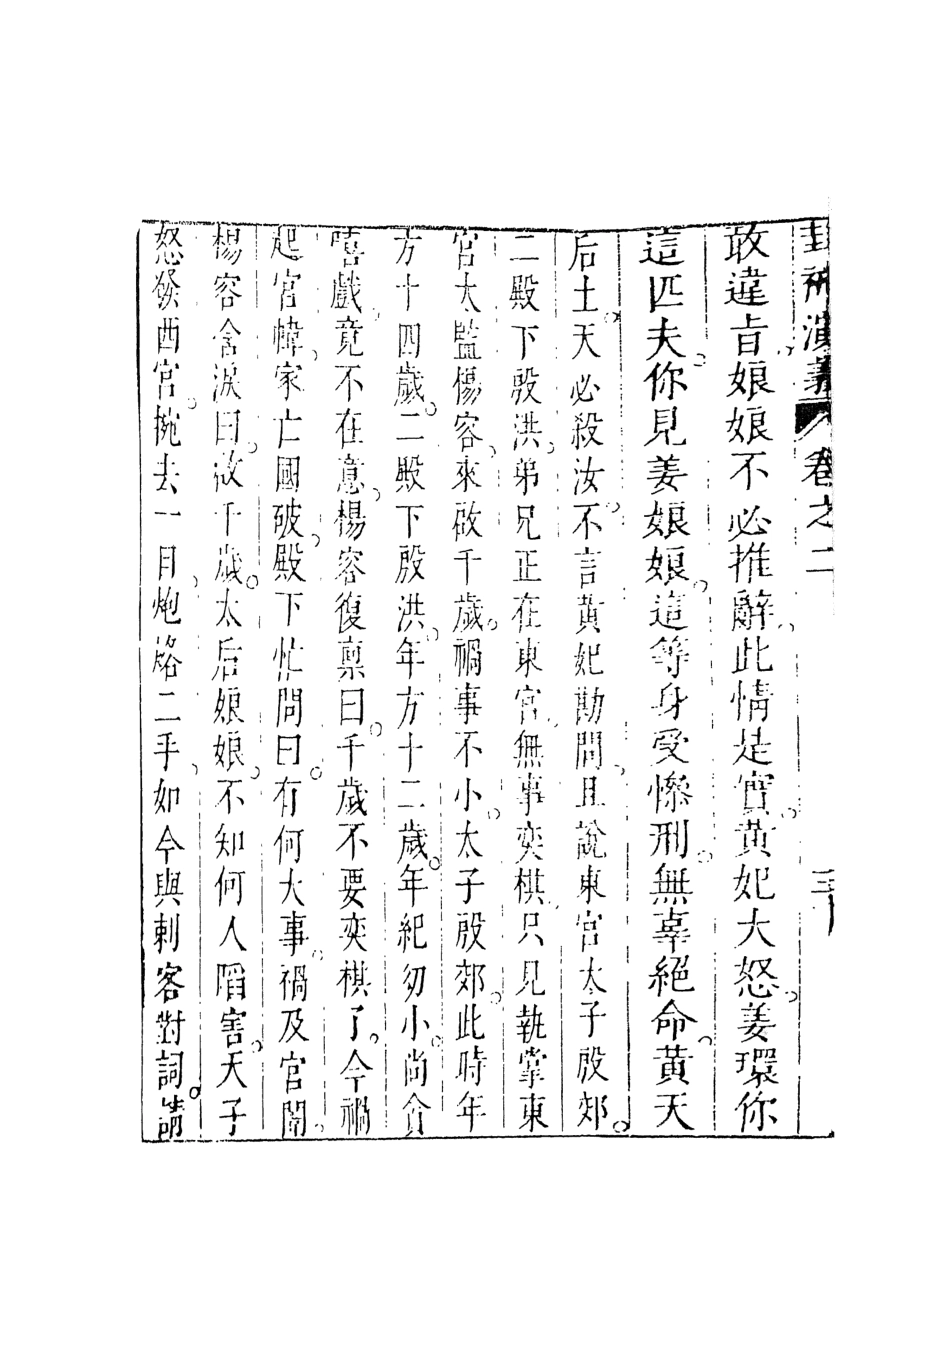 封神演義 卷之二 三
敢違旨娘娘不必推辭此情是實黃妃大怒姜環你
這匹夫你見姜娘娘這等身受慘刑無辜絕命黃天
后土天必殺汝不言黃妃勘問且說東宮太子殷郊
二殿下殷洪弟兄正在東宮無事奕棋只見執掌東
宮太監楊容來啟千歲禍事不小太子殷郊此時年
方十四歲二殿下殷洪年方十二歲年紀幼小尚貪
嘻戲竟不在意楊容復禀曰千歲不要奕棋了今禍
起宮幃家亡國破殿下忙問曰有何大事禍及宮闈
楊容含淚曰啟千歲太后娘娘不知何人陷害天子
怒發西宮挽去一目炮烙二手如今與刺客對詞請